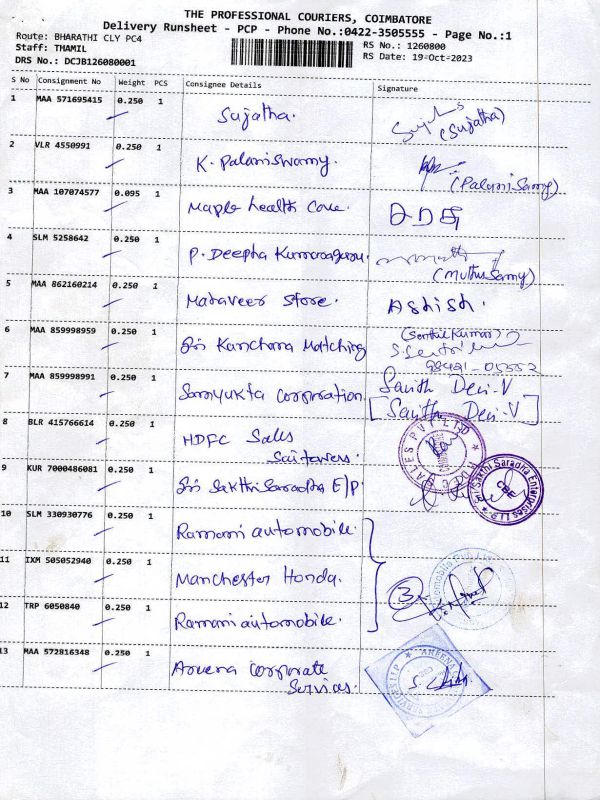 THE PROFESSIONAL COURIERS, COIMBATORE
Delivery Runsheet - PCP - Phone No.:0422-3505555 - Page No.:1
Route: BHARATHI CLY PC4
RS No.: 1260800
Staff: THAMIL
RS Date: 19-Oct-2023
DRS No.: DCJB126080001
S No Consignment No Weight PCS Consignee Details Signature
1 MAA 571695415 0.250 1 Sujatha. (Sujatha)
2 VLR 4550991 0.250 1 K. Palaniswamy. (Palani Samy)
3 MAA 107074577 0.095 1 Maple health Care.
4 SLM 5258642 0.250 1 P. Deepha Kumaraguru. (Muthu Samy)
5 MAA 862160214 0.250 1 Mahaveer Store. Ashish.
(Senthil Kumar)
6 MAA 859998959 0.250 1 Sri Kanchana Matching
7 MAA 859998991 0.250 1 Samyukta Corporation. Savith Devi-V
[Savith Devi-V]
8 BLR 415766614 0.250 1 HDFC Sales
Saitowers.
SALES PVT LTD
HDFC
9 KUR 7000486081 0.250 1 Sri Sakthi Saradha E/P.
Sri Sakthi Saradha Enterprises LLP
CBE
10 SLM 330930776 0.250 1 Ramani automobile.
11 IXM 505052940 0.250 1 Manchester Honda.
3
12 TRP 6050840 0.250 1 Ramani automobile.
13 MAA 572816348 0.250 1 Aruena Corporate
Servies.